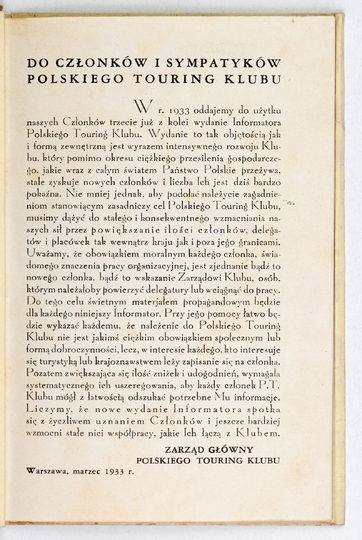 DO CZŁONKÓW I SYMPATYKÓW
POLSKIEGO TOURING KLUBU
W r. 1933 oddajemy do użytku
naszych Członków trzecie już z kolei wydanie Informatora
Polskiego Touring Klubu. Wydanie to tak objętością jak
i formą zewnętrzną jest wyrazem intensywnego rozwoju Klu-
bu, który pomimo okresu ciężkiego przesilenia gospodarcze-
go, jakie wraz z całym światem Państwo Polskie przeżywa,
stale zyskuje nowych członków i liczba Ich jest dziś bardzo
pokaźna. Nie mniej jednak, aby podołać należycie zagadnie-
niom stanowiącym zasadniczy cel Polskiego Touring Klubu,
musimy dążyć do stałego i konsekwentnego wzmacniania na-
szych sił przez powiększanie ilości członków, delega-
tów i placówek tak wewnątrz kraju jak i poza jego granicami.
Uważamy, że obowiązkiem moralnym każdego członka, świa-
domego znaczenia pracy organizacyjnej, jest zjednanie bądź to
nowego członka, bądź to wskazanie Zarządowi Klubu, osób,
którym należałoby powierzyć delegatury lub wciągnąć do pracy.
Do tego celu świetnym materjałem propagandowym będzie
dla każdego niniejszy Informator. Przy jego pomocy łatwo bę-
dzie wykazać każdemu, że należenie do Polskiego Touring
Klubu nie jest jakimś ciężkim obowiązkiem społecznym lub
formą dobroczynności, lecz, w interesie każdego, kto interesuje
się turystyką lub krajoznawstwem leży zapisanie się na członka.
Pozatem zwiększająca się ilość zniżek i udogodnień, wymagała
systematycznego ich uszeregowania, aby każdy członek P.T.
Klubu mógł z łatwością odszukać potrzebne Mu informacje.
Liczymy, że nowe wydanie Informatora spotka
się z życzliwem uznaniem Członków i jeszcze bardziej
wzmocni stałe nici współpracy, jakie Ich łączą z Klubem.
ZARZĄD GŁÓWNY
POLSKIEGO TOURING KLUBU
Warszawa, marzec 1933 r.